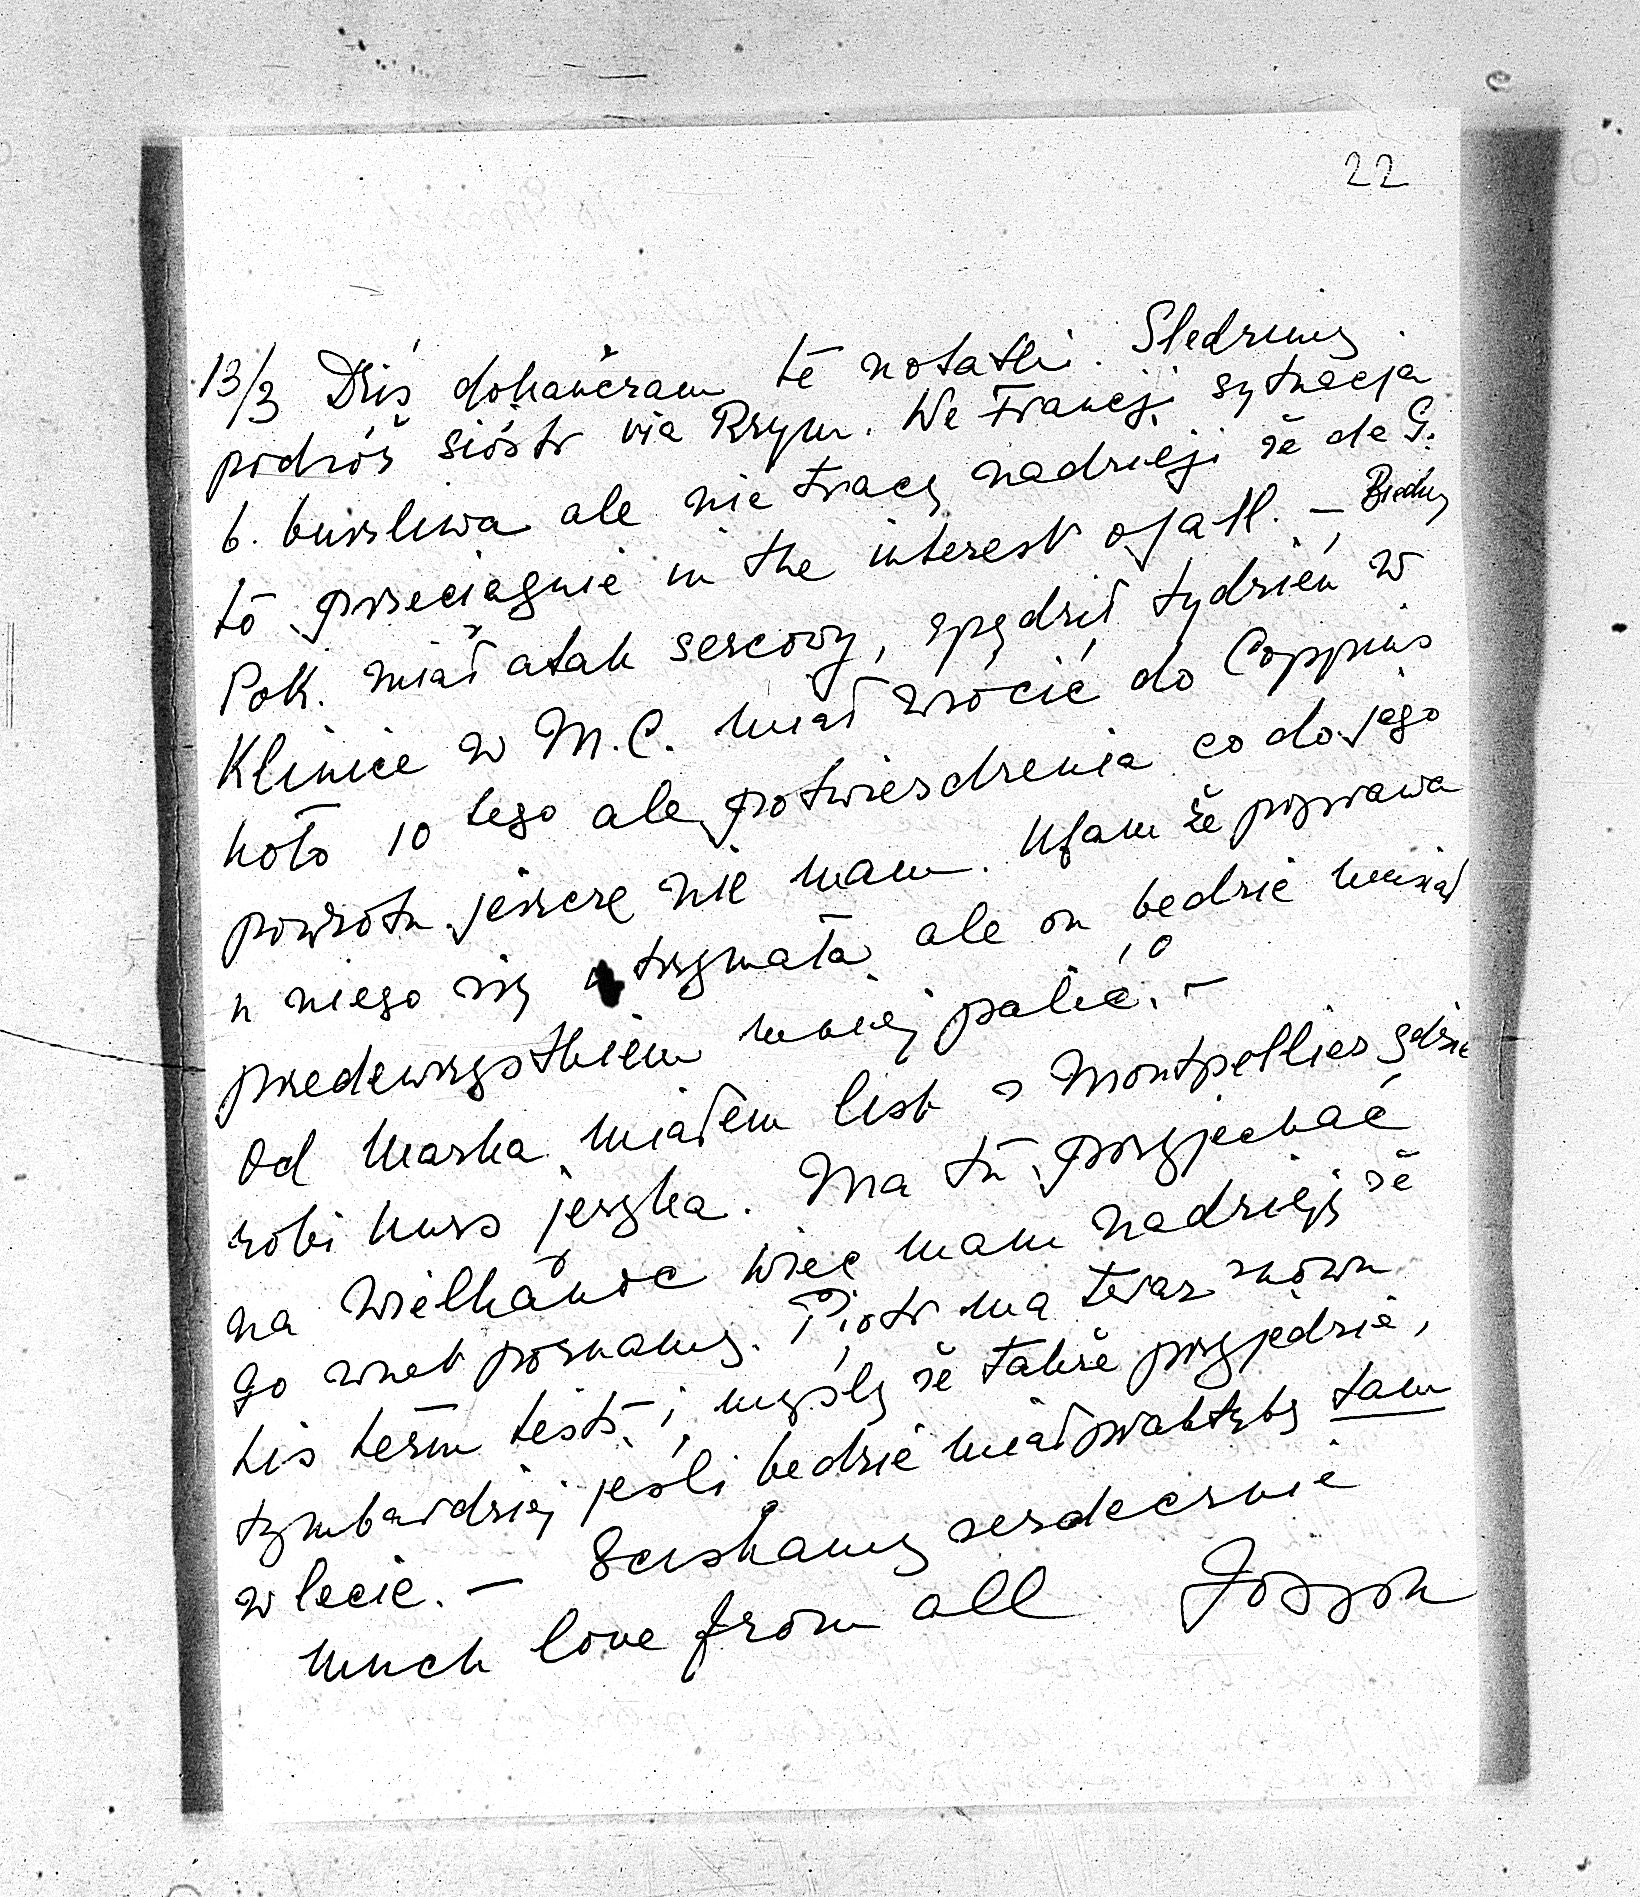 22
13/3 Dziś dokańczam te notatki. Śledzimy
podróż sióstr via Rzym. We Francji sytuacja
b. burzliwa ale nie tracę nadzieji że de G.
to przeciągnie in the interest of all. – Biedny
Pok. miał atak sercowy, spędził tydzień w
Klinice w M.C. miał wrócić do Coppins
koło 10 tego ale potwierdzenia co do jego
powrotu jeszcze nie mam. Ufam że poprawa
u niego się utrzymała ale on będzie musiał
przedewszystkiem mniej palić. –
Od Marka miałem list z Montpellier gdzie
robi kurs języka. Ma tu przyjechać
na Wielkanoc więc mam nadzieję że
go wnet poznamy. Piotr ma teraz znowu
his term tests i myślę że także przyjedzie,
tymbardziej jeśli będzie miał praktykę tam
w lecie. – Ściskamy serdecznie
much love from all